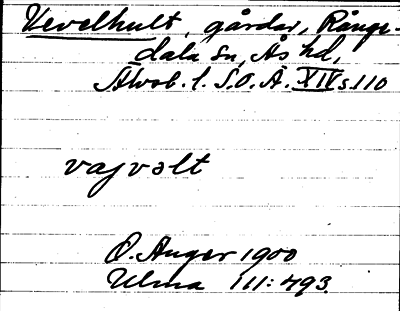 Vevelhult, gårdar, Rånge-
dala sn, Ås hd,
Älvsb. l. S.O.Ä. XIV s. 110
vajvəlt
O. Anger 1900
Ulma 111:493.